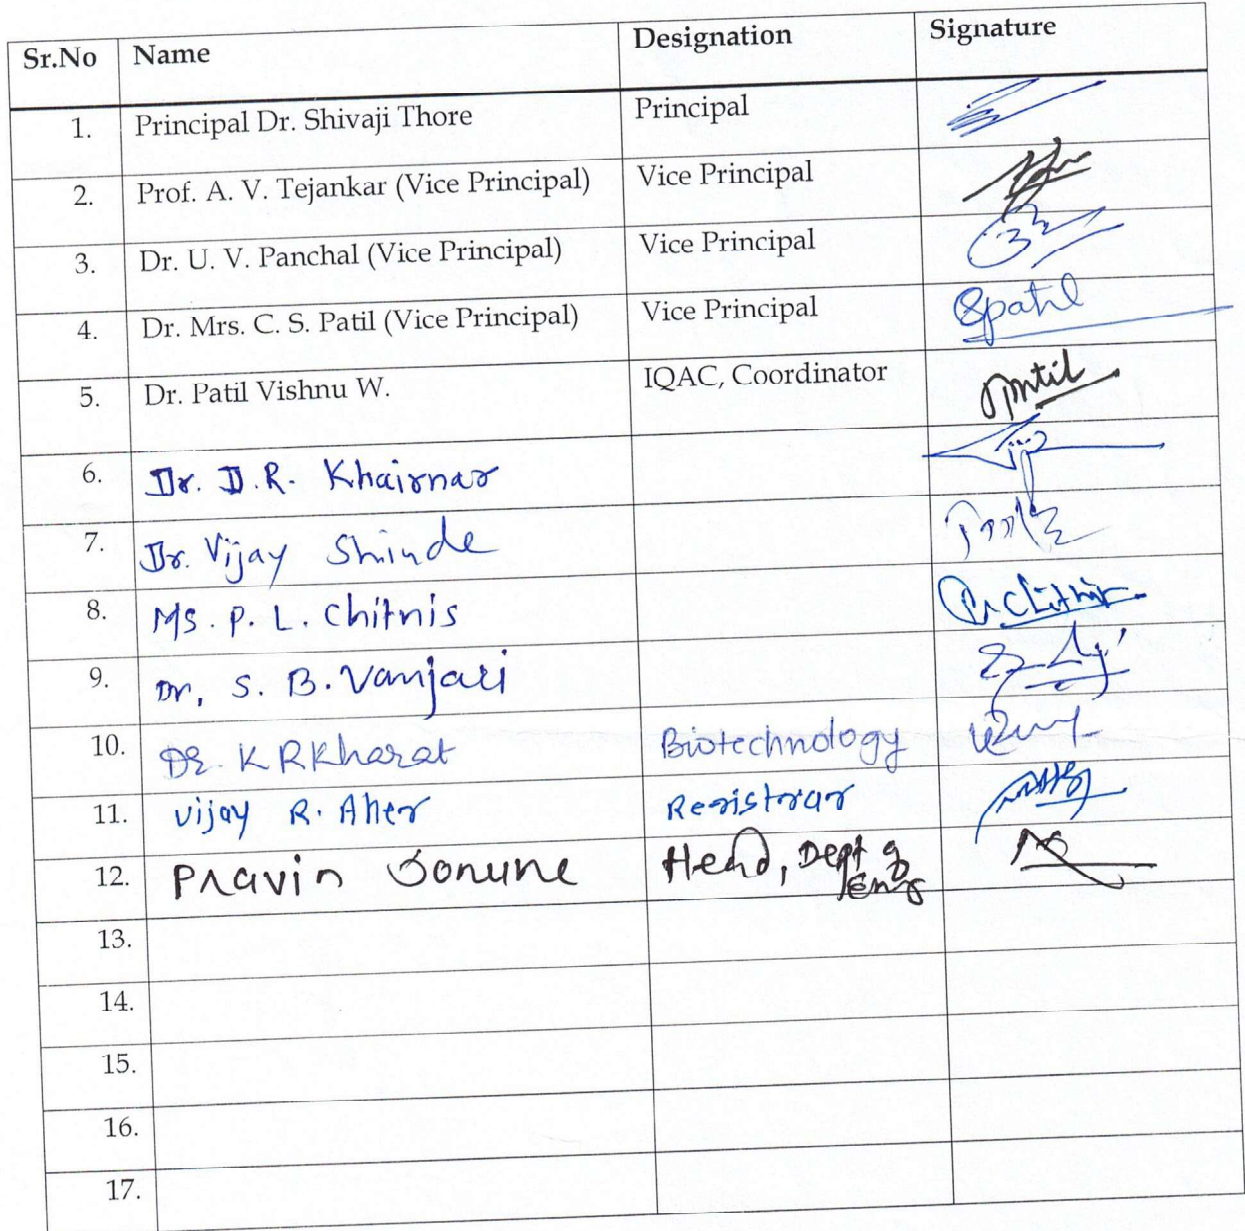 Sr.No Name Designation Signature
1. Principal Dr. Shivaji Thore Principal
2. Prof. A. V. Tejankar (Vice Principal) Vice Principal
3. Dr. U. V. Panchal (Vice Principal) Vice Principal
4. Dr. Mrs. C. S. Patil (Vice Principal) Vice Principal Spatil
5. Dr. Patil Vishnu W. IQAC, Coordinator
6. Dr. D.R. Khairnar
7. Dr. Vijay Shinde
8. Ms. P. L. Chitnis
9. Dr, S. B. Vanjari
10. Dr. K R Kharat Biotechnology
11. Vijay R. Aher Registrar
12. Pravin Sonune Head, Dept of
Eng
13.
14.
15.
16.
17.